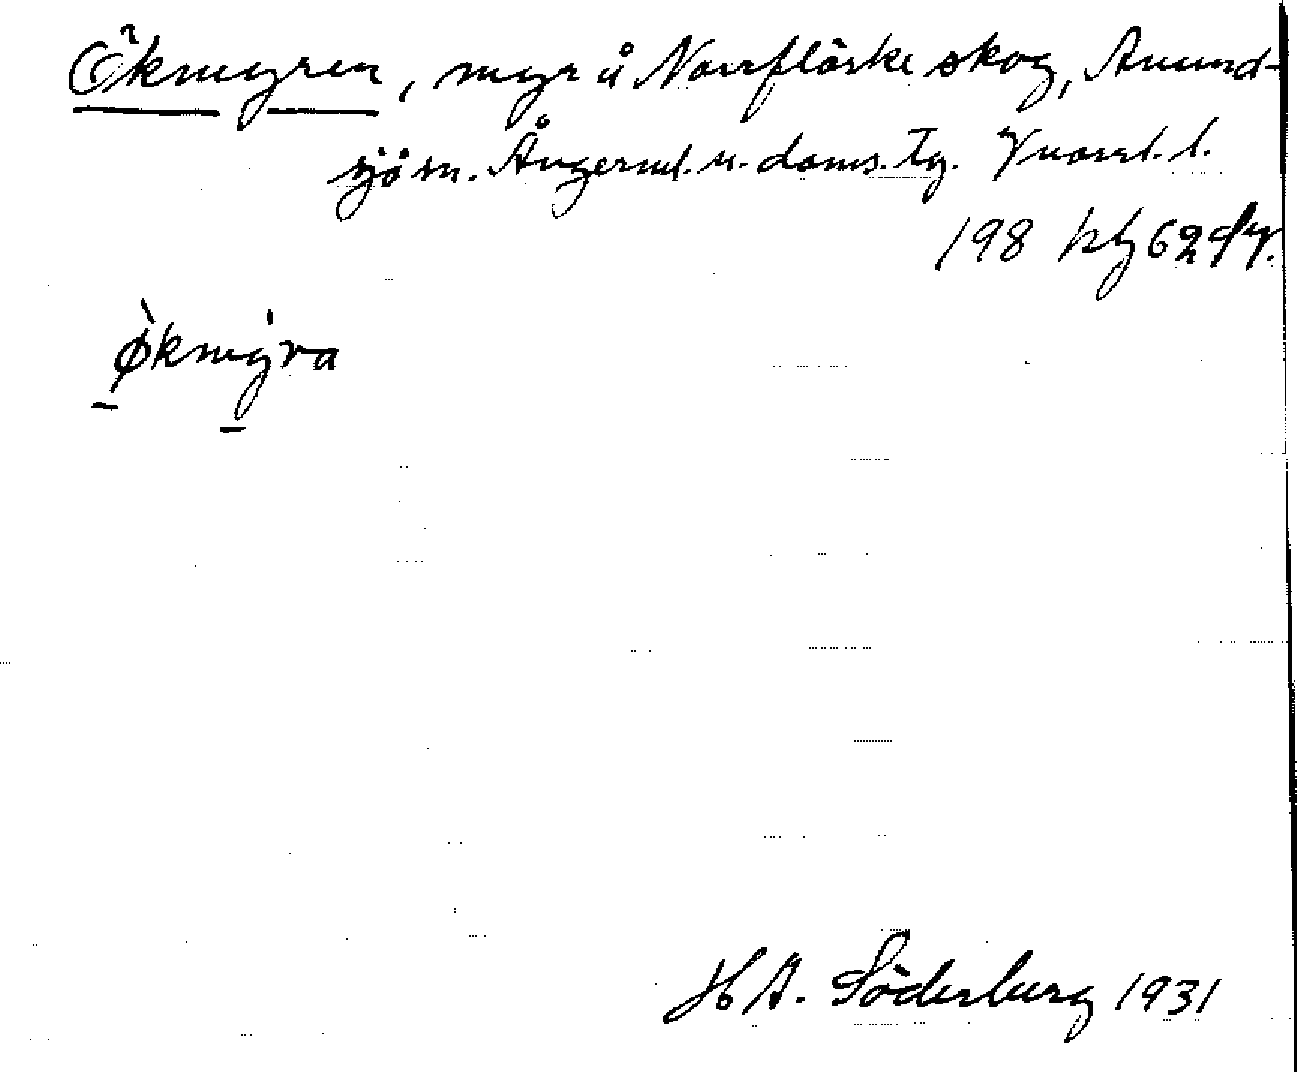 Ökmyren, myr å Norrflärke skog, Anund-
sjö sn. Ångerml. n. doms. Tg. Vnorrl. l.
198 kbl 62
Økmyra
H A. Söderberg 1931